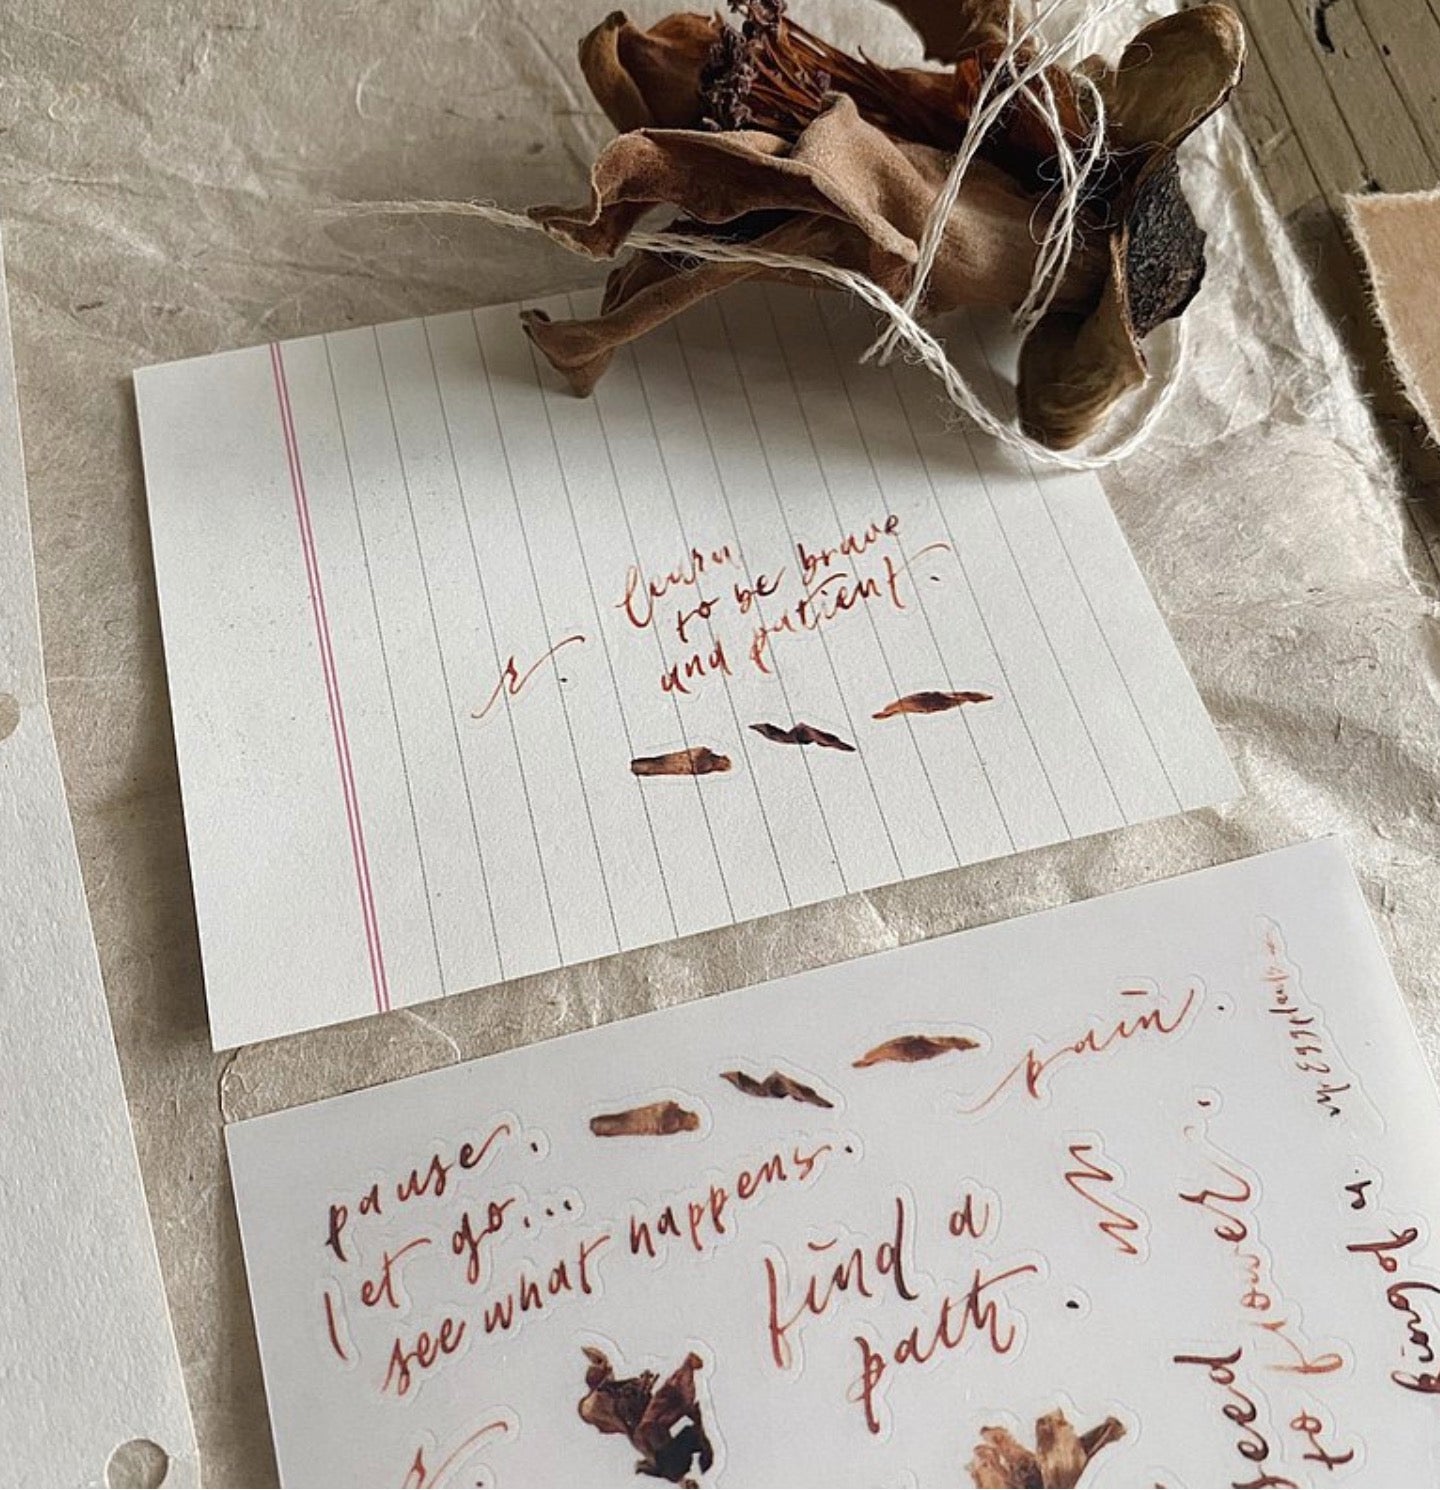 learn
to be brave
and patient.
pause.
let go...
see what happens.
pain.
find a
path.
seed
to flower.